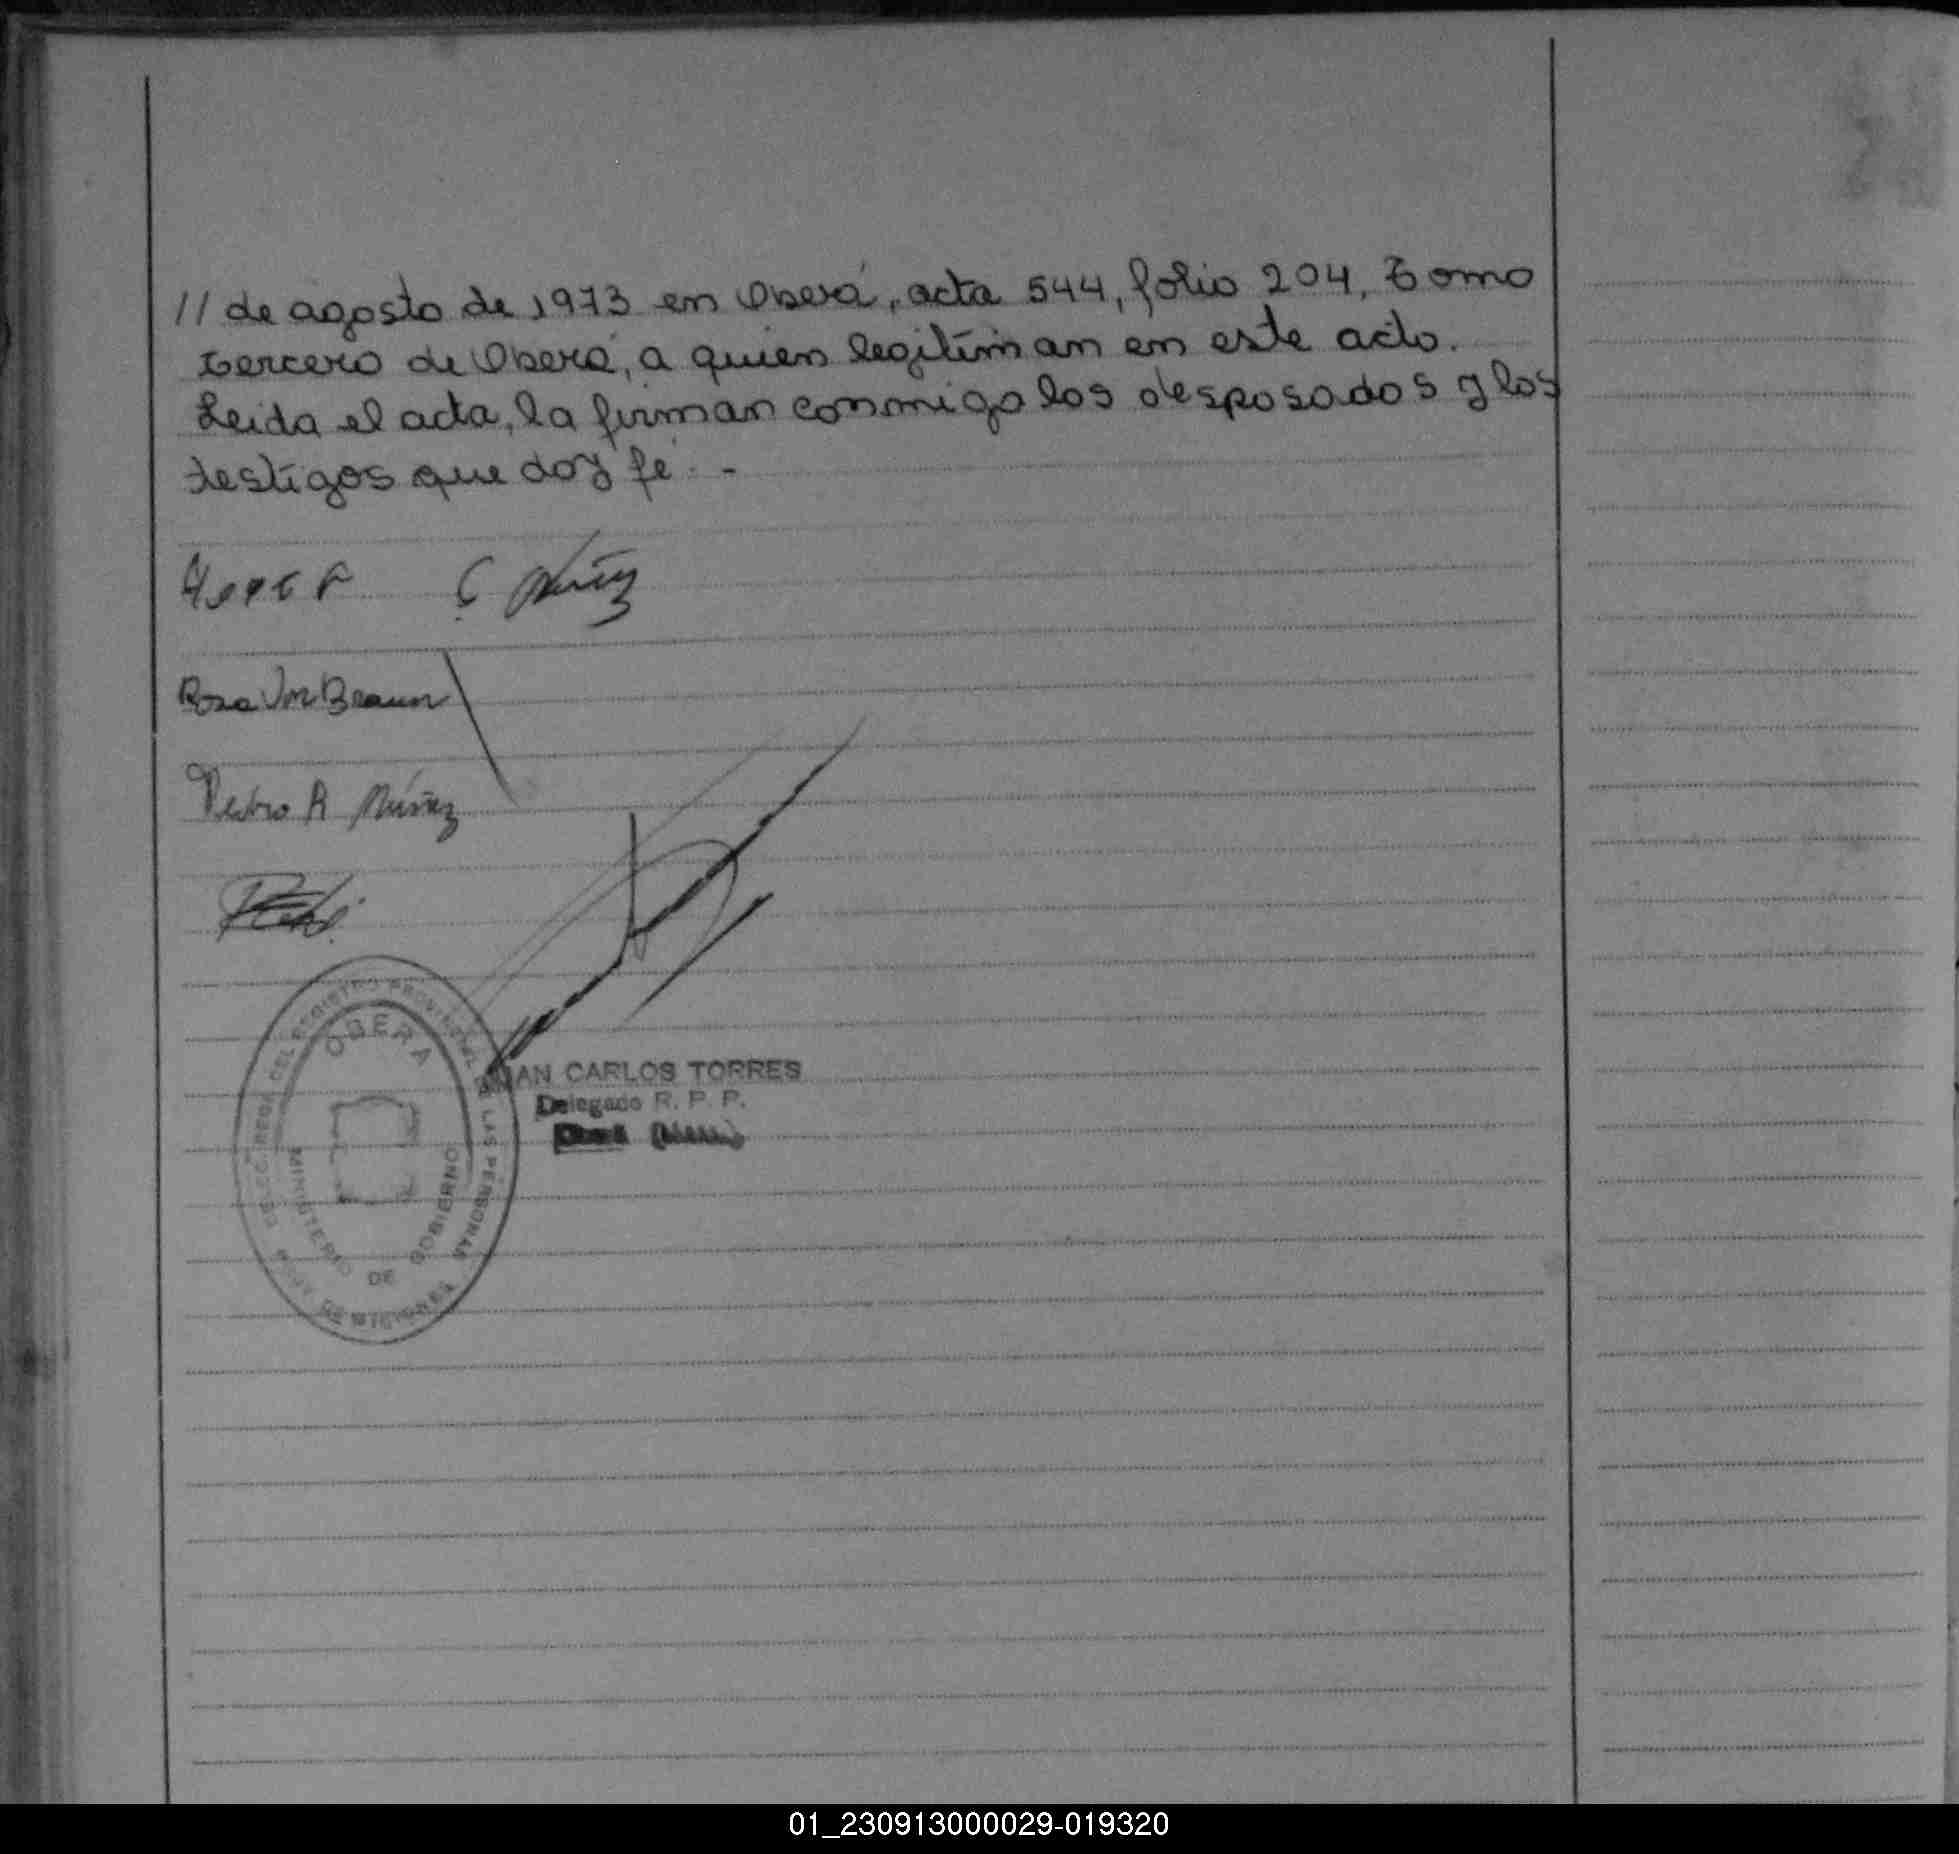 // de agosto de 1973 en Oberá, acta 544, folio 204, Tomo
tercero de Oberá, a quien legitiman en este acto.
Leida el acta, la firman conmigo los desposados y los
testigos que doy fé. -
Núñez
Rosa Von Braun
Pedro R Núñez
OBERA
DEL REGISTRO PROVINCIAL DE LAS PERSONAS
MINISTERIO DE GOBIERNO
DE MISIONES
JUAN CARLOS TORRES
Delegado R. P. P.
01_230913000029-019320